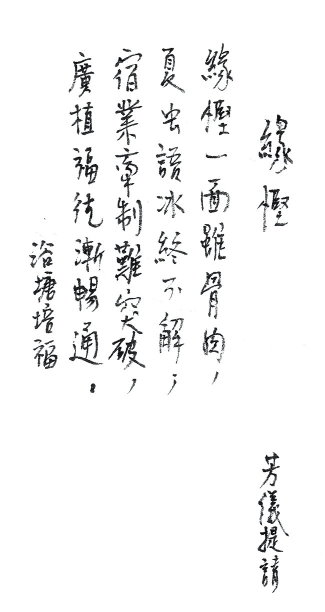 緣慳
芳儀提請
緣慳一面雖骨肉，
夏虫語冰終不解；
宿業牽制難突破，
廣植福德漸暢通。
浴塘培福